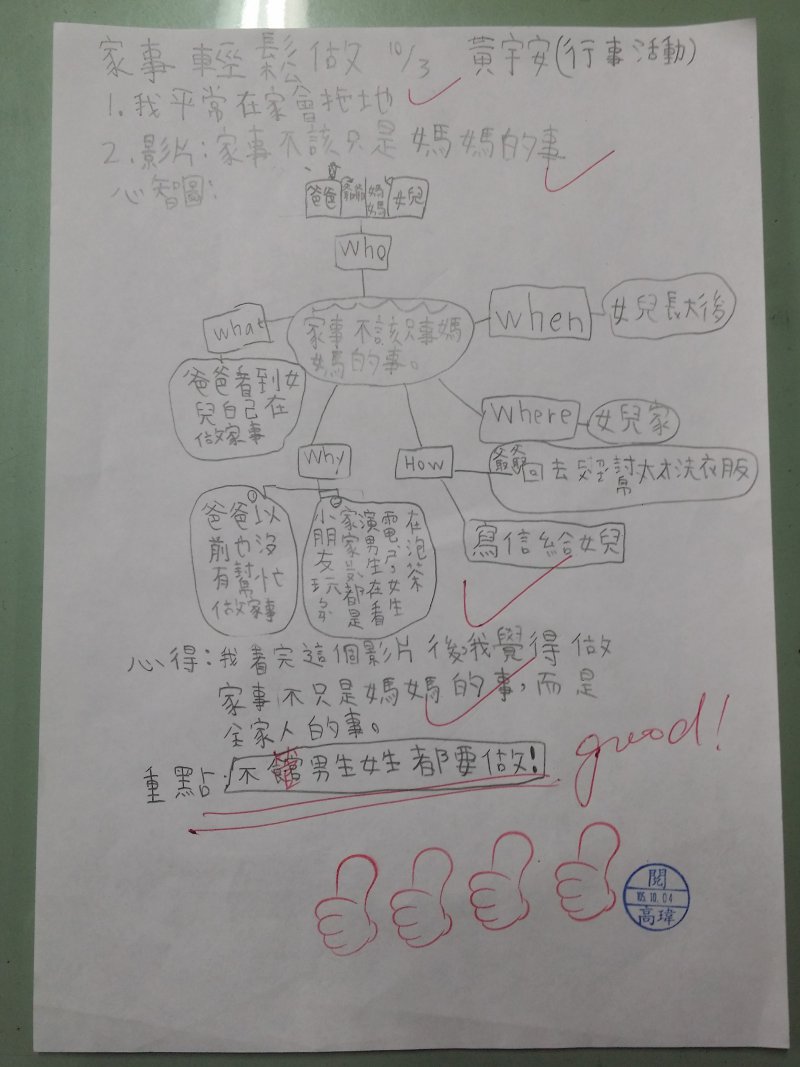 家事輕鬆做 10/3 黃宇安(行事活動)
1.我平常在家會拖地
2.影片:家事不該只是媽媽的事
心智圖:
爸爸 爺爺 媽媽 女兒
Who
what
when
女兒長大後
家事不該只事媽
媽的事。
爸爸看到女
兒自己在
做家事
Where
女兒家
Why
How
回去幫太太洗衣服
寫信給女兒
①
爸爸以
前也沒
有幫忙
做家事
②
小朋友玩
家家
演男生在看
電 女生
在泡茶
心得:我看完這個影片後我覺得做
家事不只是媽媽的事,而是
全家人的事。
重點:不館男生女生都要做!
good!
閱
105.10.04
高瑋